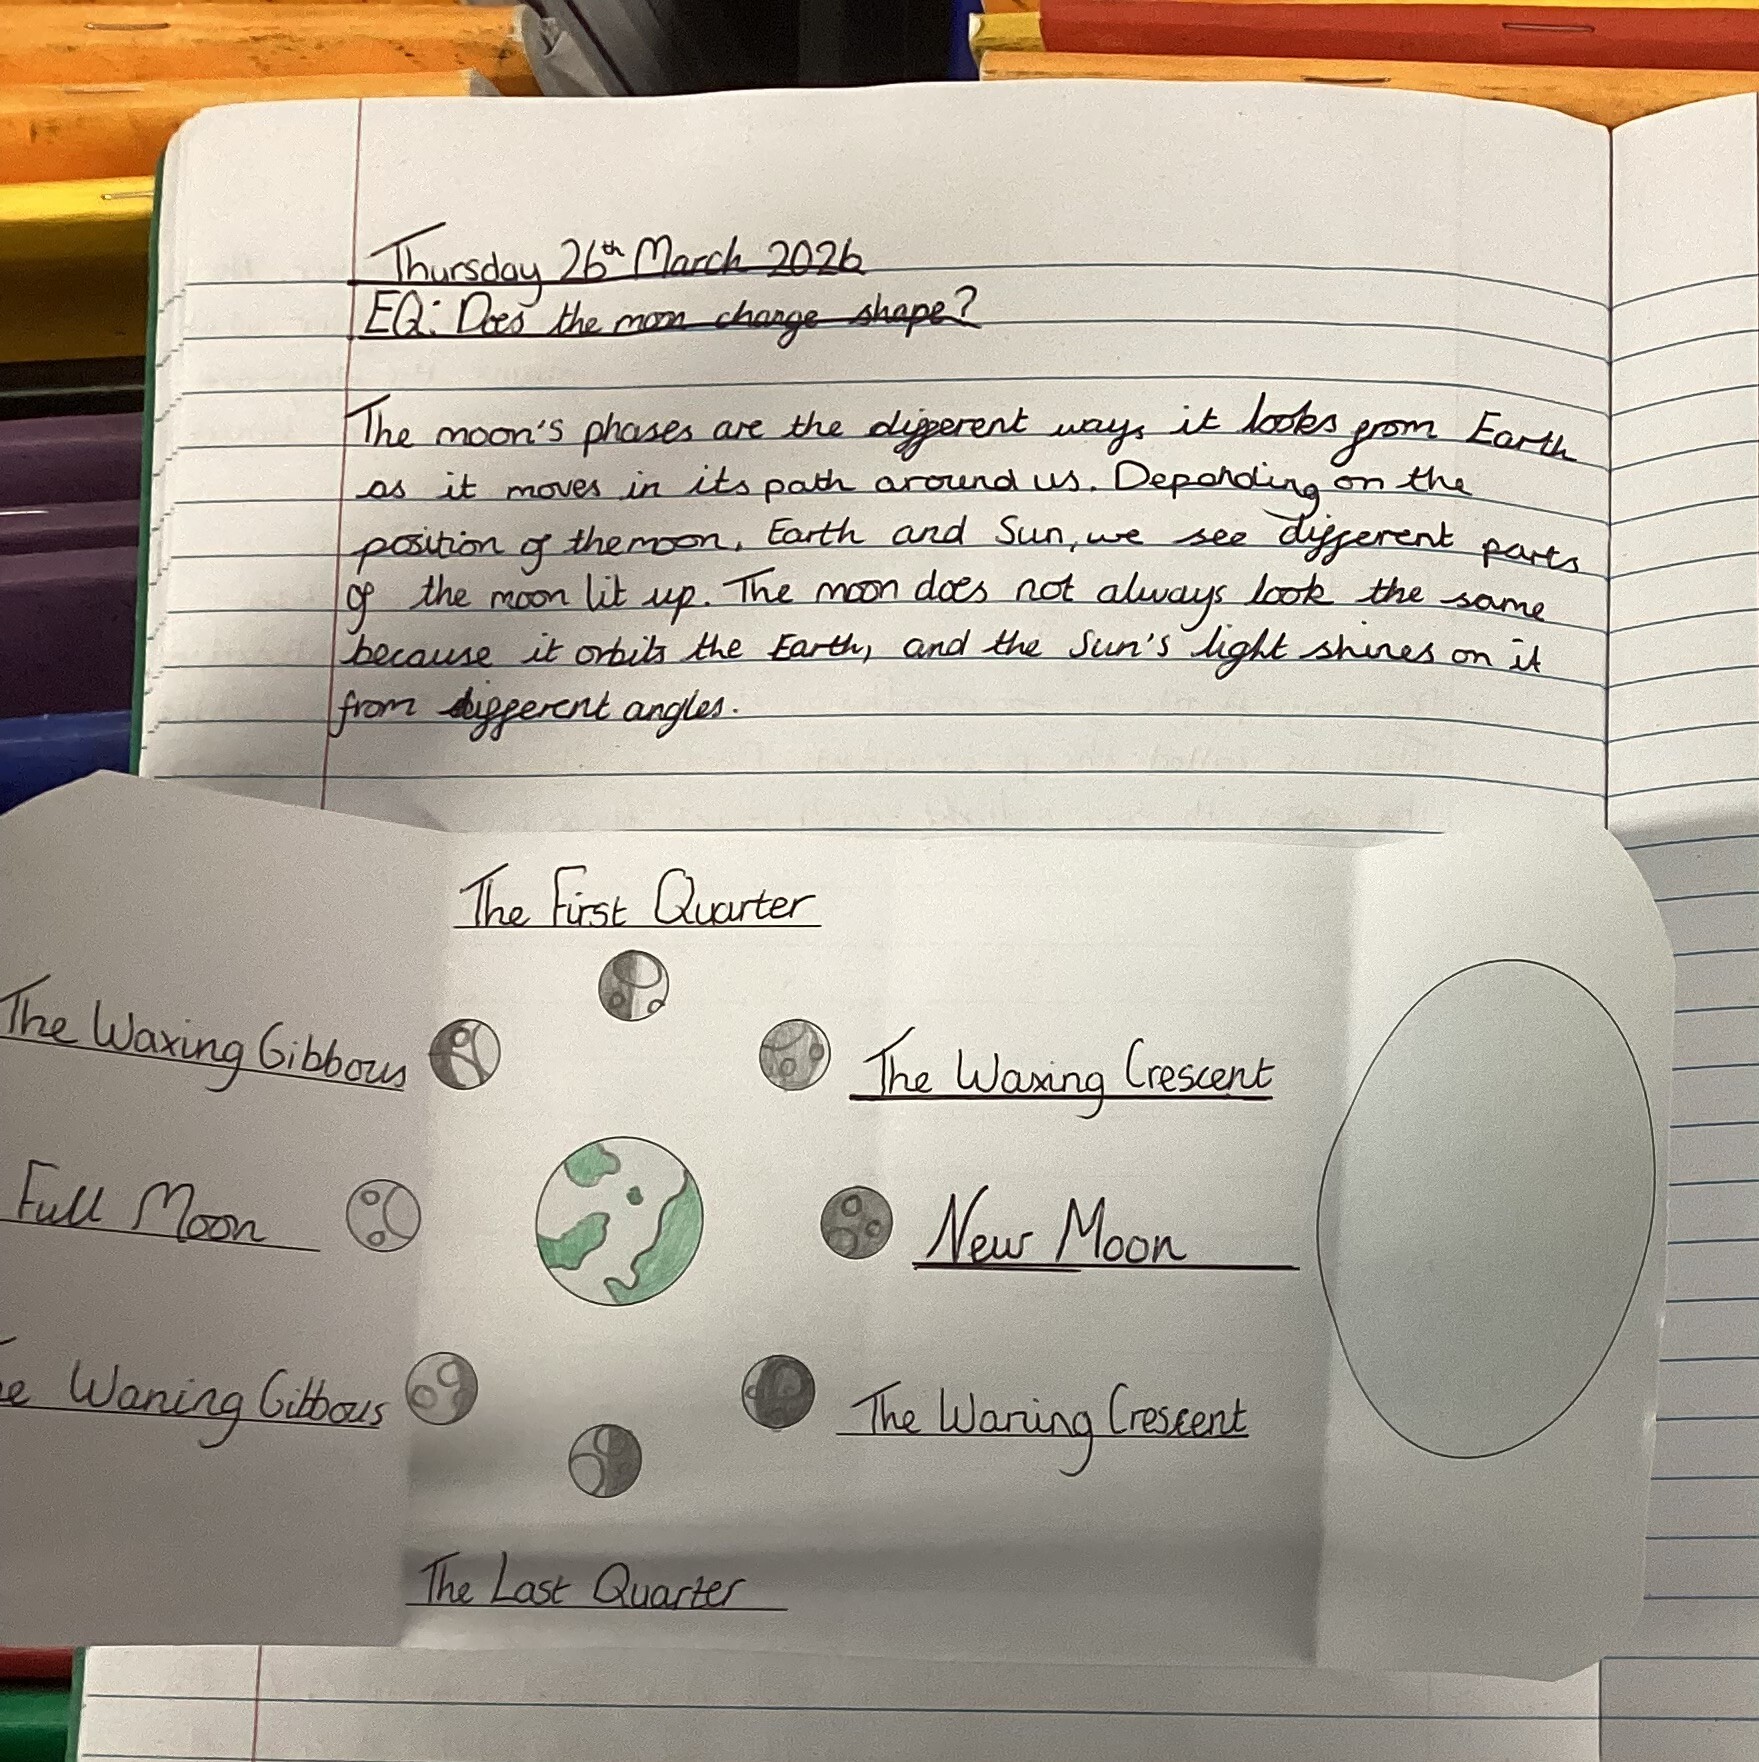 Thursday 26th March 2026
EQ: Does the moon change shape?
The moon's phases are the different ways it looks from Earth
as it moves in its path around us. Depending on the
position of the moon, Earth and Sun, we see different parts
of the moon lit up. The moon does not always look the same
because it orbits the Earth, and the Sun's light shines on it
from different angles.
The First Quarter
The Waxing Gibbous
The Waxing Crescent
Full Moon
New Moon
e Waning Gibbous
The Waning Crescent
The Last Quarter